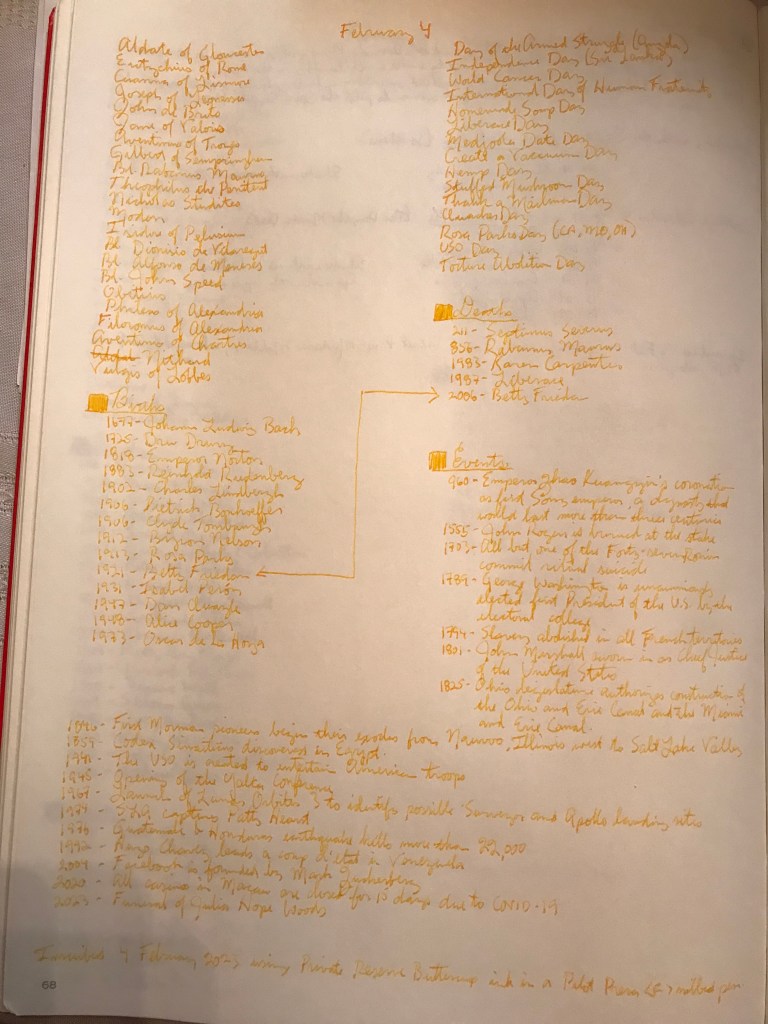 February 4
Aldate of Gloucester
Eutychius of Rome
Cuanna of Lismore
Joseph of Leonissa
John de Brito
Jane of Valois
Aventinus of Troyes
Gilbert of Sempringham
Bl Rabanus Maurus
Theophilus the Penitent
Nicholas Studites
Modan
Isidore of Pelusium
Bl Dionisio de Vilaregut
Bl
Bl John Speed
Obitius
Phileas of Alexandria
Filoromus of Alexandria
Aventinus of Chartres
Nithard
Vulgis of Lobbes
Births
1677- Johann Ludwig Bach
1725- Dru Drury
1818- Emperor Norton
1883- Reinhold Rudenberg
1902- Charles Lindbergh
1906- Dietrich Bonhoffer
1906- Clyde Tombaugh
1912- Byron Nelson
1913- Rosa Parks
1921- Betty Friedan
1931- Isabel Perón
1947- Dan Quayle
1948- Alice Cooper
1973- Oscar de la Hoya
Day of the Armed Struggle (Angola)
Independence Day (Sri Lanka)
World Cancer Day
International Day of Human Fraternity
Homemade Soup Day
Liberace Day
Medjoola Date Day
Create a Vacuum Day
Hemp Day
Stuffed Mushroom Day
Thank a Mailman Day
Quacker Day
Rosa Parks Day (CA, MO, OH)
USO Day
Torture Abolition Day
Deaths
211- Septimus Severus
856- Rabanus Maurus
1983- Karen Carpenter
1987- Liberace
2006- Betty Friedan
Events
960- Emperor Zhao Kuangyin's coronation
as first Song emperor, a dynasty that
would last more than three centuries
1555- John Rogers is burned at the stake
1703- All but one of the Forty-seven Ronin
commit ritual suicide
1789- George Washington is unanimously
elected first President of the U.S. by the
electoral college
1794- Slavery abolished in all French territories
1801- John Marshall sworn in as Chief Justice
of the United States
1825- Ohio legislature authorizes construction of
the Ohio and Erie Canal and the Miami
and Erie Canal.
1846- First Mormon pioneers begin their exodus from Nauvoo, Illinois west to Salt Lake Valley
1859- Codex Sinaiticus discovered in Egypt.
1941- The USO is created to entertain American troops
1945- Opening of the Yalta Conference
1967- Launch of Lunar Orbiter 3 to identify possible Surveyor and Apollo landing sites
1974- SLA captures Patty Hearst
1976- Guatemala & Honduras earthquake kills more than 22,000
1992- Hugo Chavez leads a coup d'etat in Venezuela
2004- Facebook is founded by Mark Zuckerberg
2020- All casinos in Macau are closed for 15 days due to COVID-19
2023- Funeral of Julia Hope Woods
4 February 2023 using Private Reserve Buttercup ink in a Pilot Prera <F> nibbed pen
68